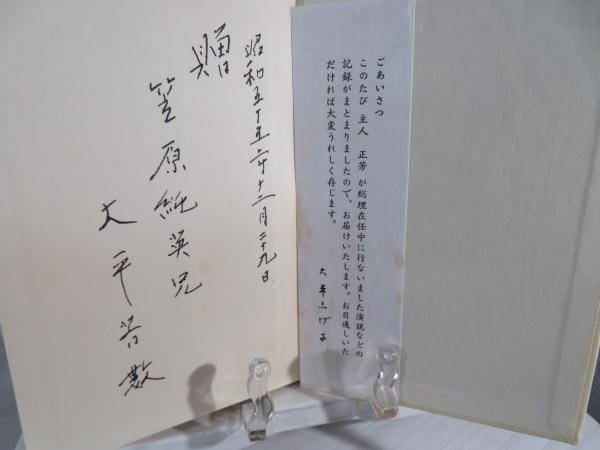 ごあいさつ
このたび 主人 正芳 が総理在任中に行ないました演説などの
記録がまとまりましたので、お届けいたします。お目通しいた
だければ大変うれしく存じます。
大平しげ子
昭和五十五年十二月二十九日
贈
笠原純英兄
大平芳数